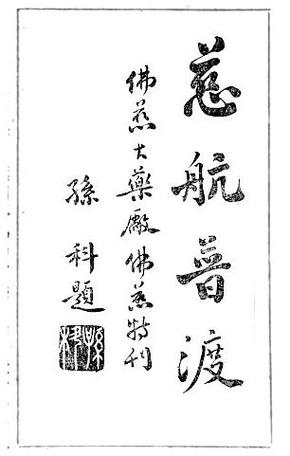 慈航普渡
佛慈大藥厰佛慈特刊
孫科題
孫科